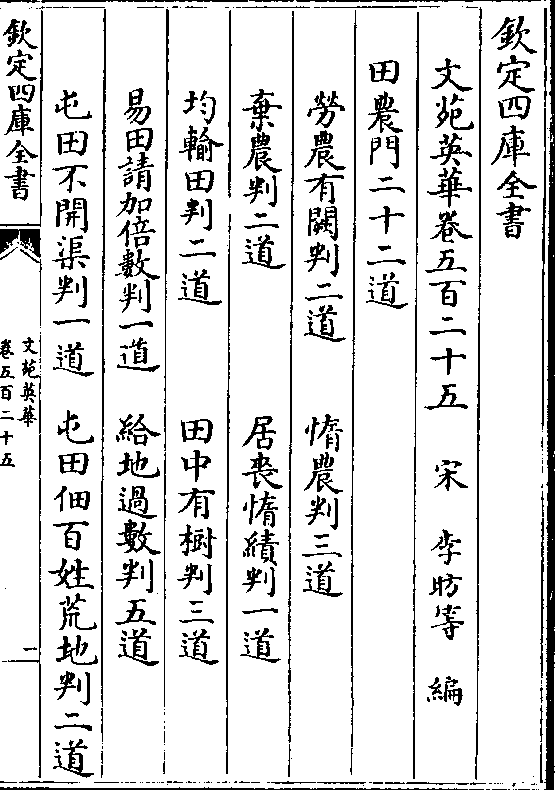 欽定四庫全書
文苑英華卷五百二十五　宋　李昉等　編
田農門二十二道
勞農有闕判二道　惰農判三道
棄農判二道　居喪惰績判一道
均輸田判二道　田中有樹判三道
易田請加倍數判一道　給地過數判五道
屯田不開渠判一道　屯田佃百姓荒地判二道
欽定四庫全書
文苑英華
卷五百二十五
一